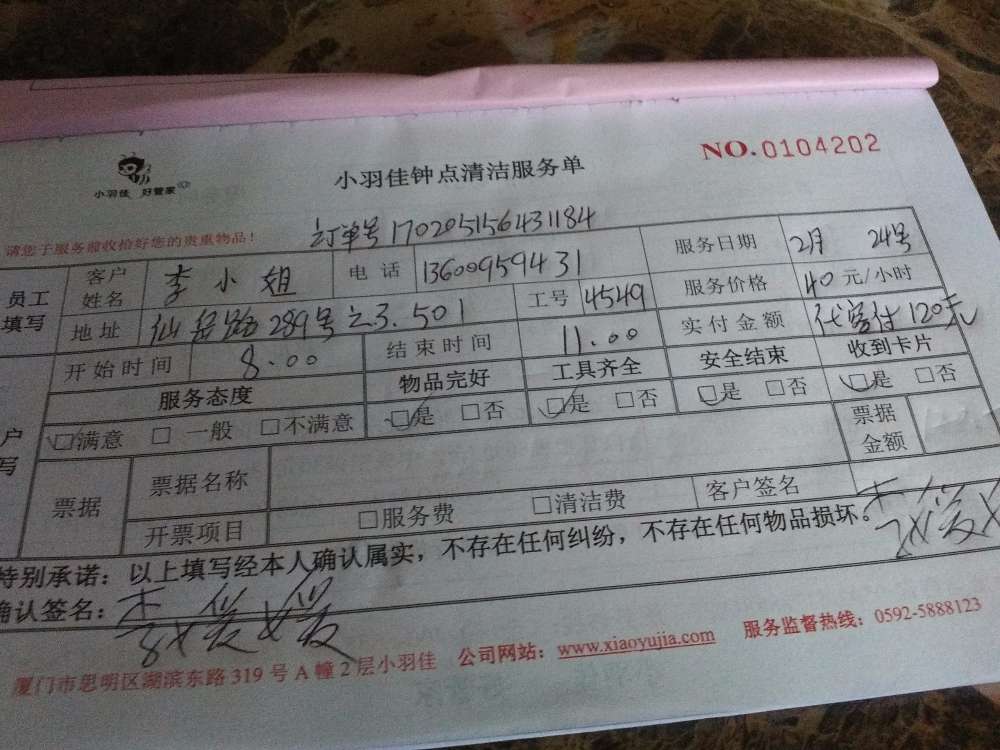 小羽佳 好管家
小羽佳钟点清洁服务单
NO.0104202
请您于服务前收拾好您的贵重物品!
订单号170205156431184
员工填写 客户姓名 李小姐 电话 13600959431 服务日期 2月 24号
地址 仙岳路289号之3.501 工号 4549 服务价格 40元/小时
开始时间 8.00 结束时间 11.00 实付金额 代客付120元
服务态度 物品完好 工具齐全 安全结束 收到卡片
☑满意 □一般 □不满意 ☑是 □否 ☑是 □否 ☑是 □否 ☑是 □否
户写
票据 票据名称 票据金额
开票项目 □服务费 □清洁费 客户签名
特别承诺:以上填写经本人确认属实,不存在任何纠纷,不存在任何物品损坏。
确认签名:
厦门市思明区湖滨东路319号A幢2层小羽佳 公司网站:www.xiaoyujia.com 服务监督热线:0592-5888123